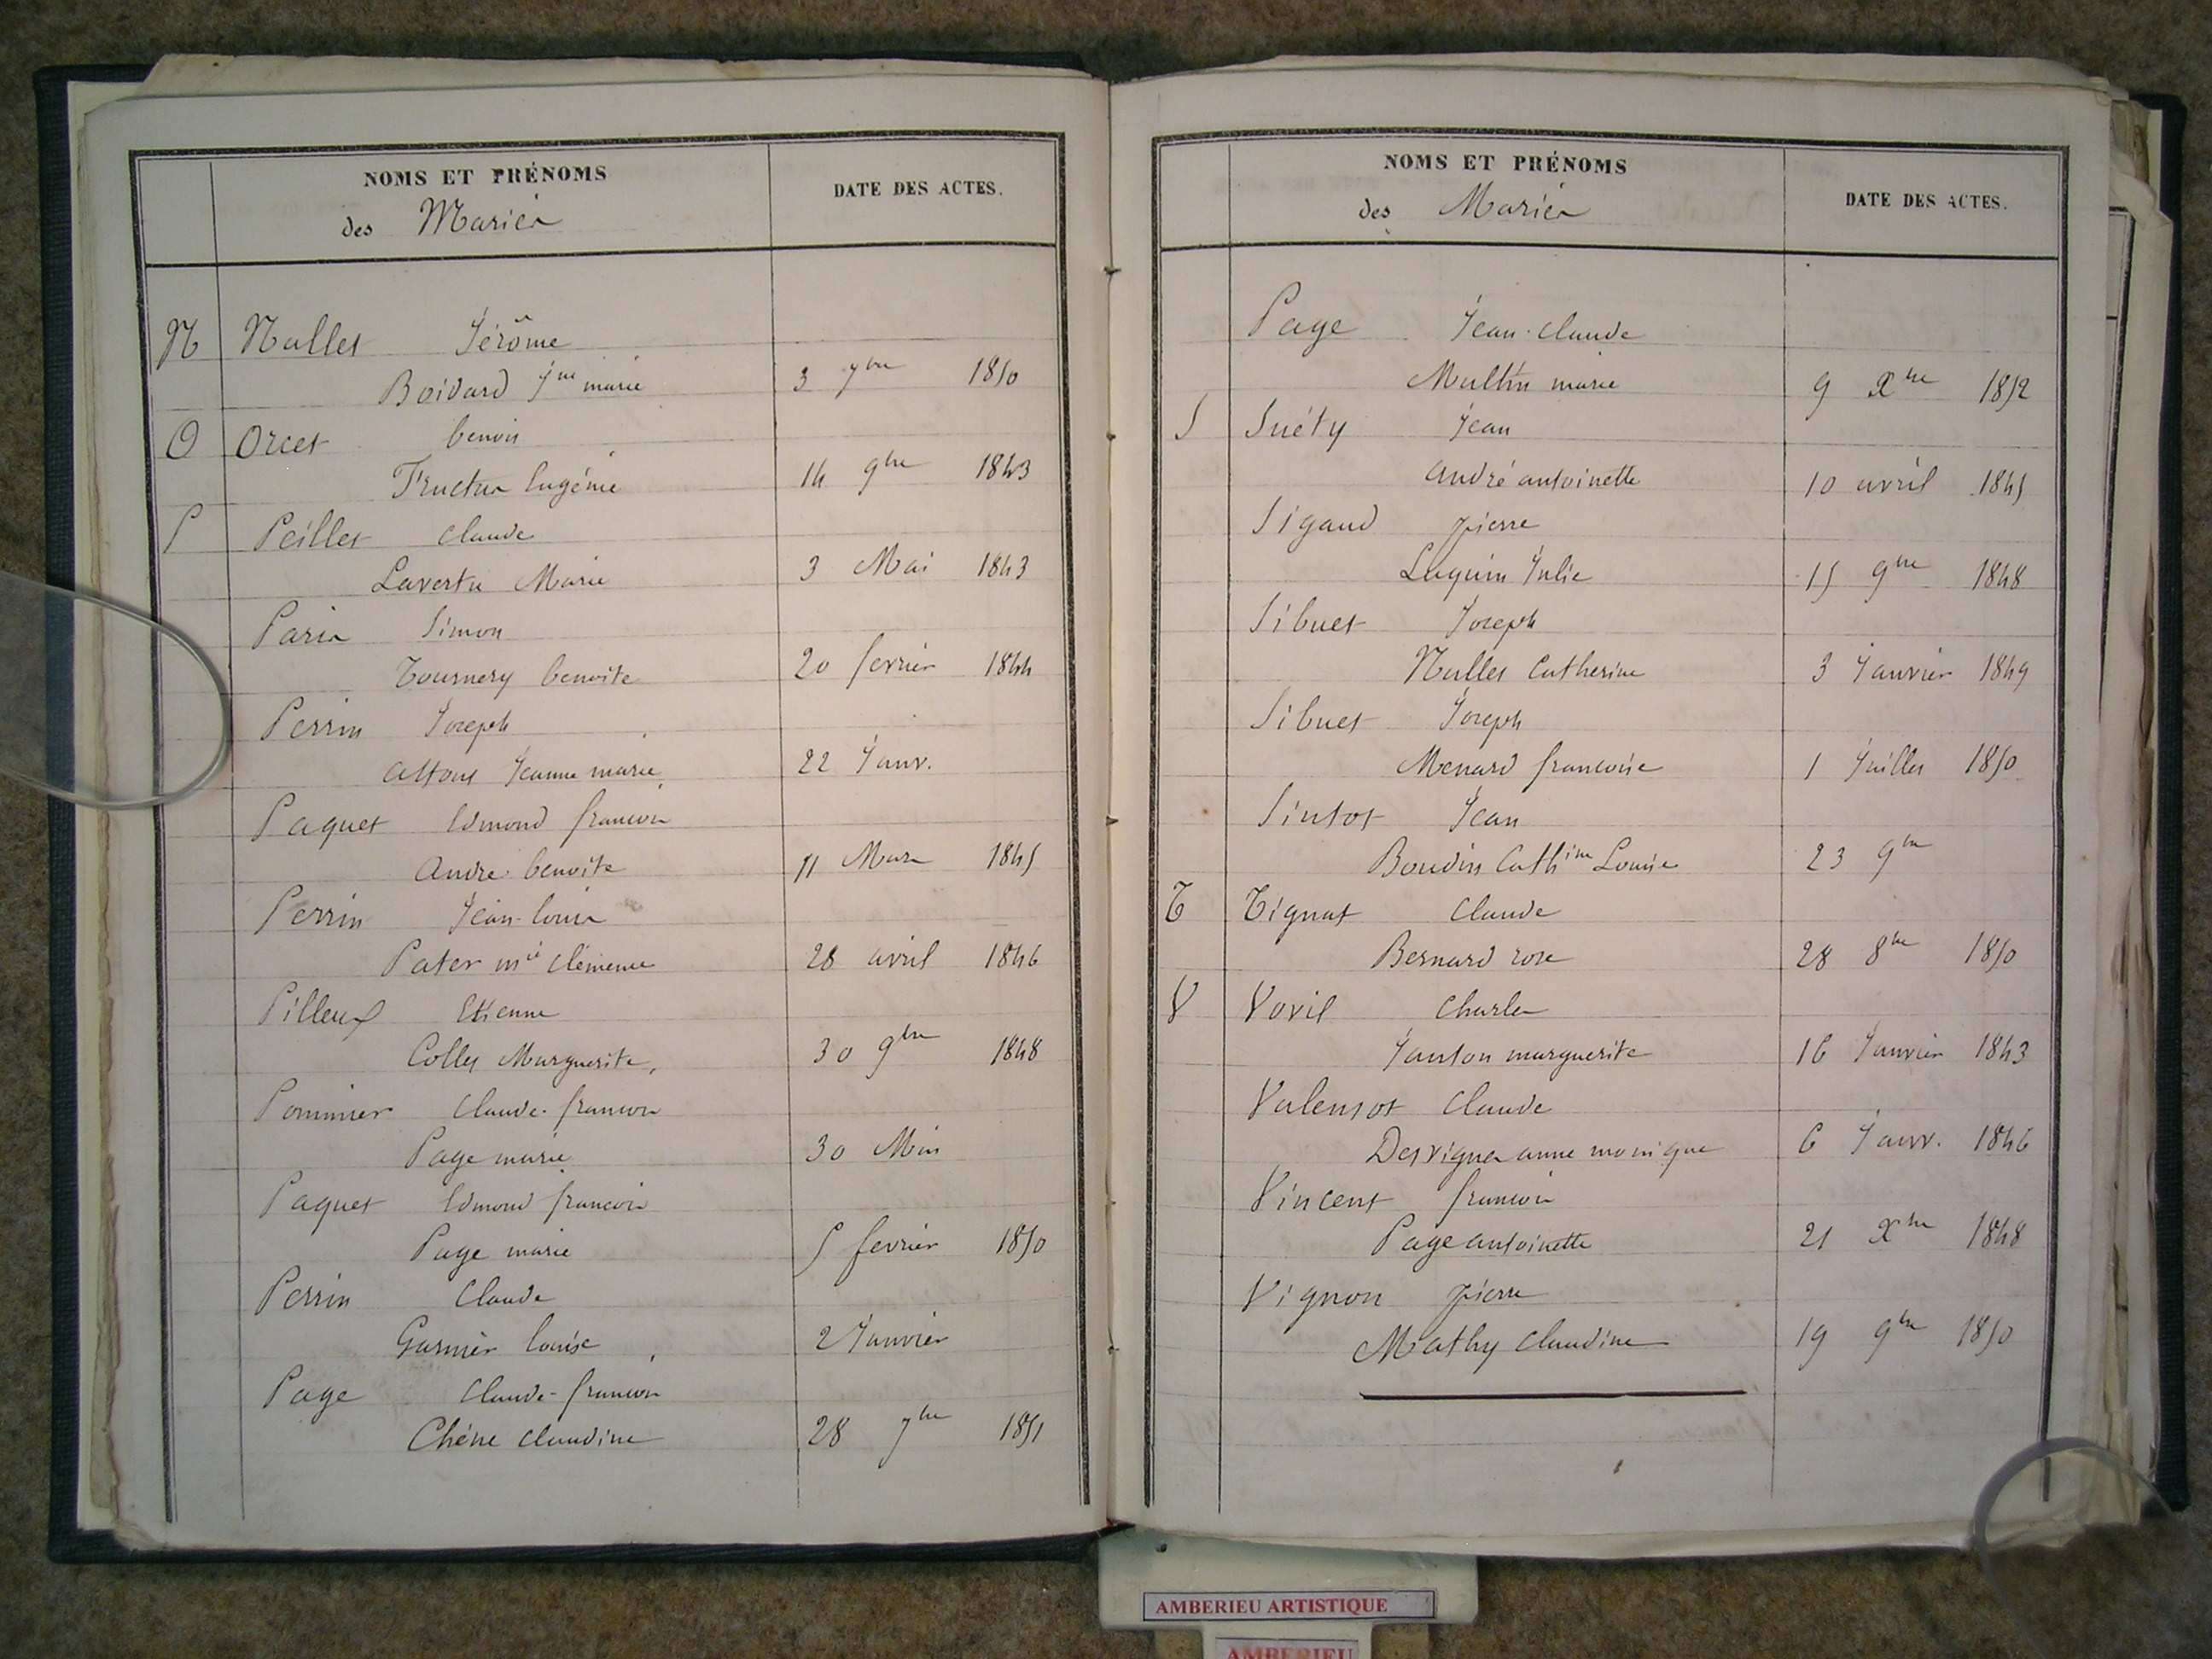 NOMS ET PRÉNOMS
des Mariés
DATE DES ACTES.
N Nallet Jérôme
Boidard Jne marie 3 7bre 1850
O Orcet benoit
Fructus Eugénie 14 9bre 1843
P Peillet Claude
Lavertu Marie 3 Mai 1843
Paris Simon
Tournery benoite 20 fevrier 1844
Perrin Joseph
Jeanne marie 22 Janv.
Paquet Edmond francois
Andre benoite 11 Mars 1845
Perrin Jean-louis
Pater mie Clémence 28 avril 1846
Pilleux Etienne
Collet Marguerite, 30 9bre 1848
Pommier Claude-francois
Page marie 30 Mai
Paquet Edmond francois
Page marie 5 fevrier 1850
Perrin Claude
Garnier louise 2 Janvier
Page Claude-francois
Chêne claudine 28 7bre 1851
NOMS ET PRÉNOMS
des Mariés
DATE DES ACTES.
Page Jean-Claude
Multin marie 9 Xbre 1852
S Suéty Jean
André antoinette 10 avril 1845
Sigaud pierre
Laguin Julie 15 9bre 1848
Sibuet Joseph
Nallet Catherine 3 Janvier 1849
Sibuet Joseph
Menard francoise 1 Juillet 1850
Sintot Jean
Boudin Cathine Louise 23 9bre
T Tignat Claude
Bernard rose 28 8bre 1850
V Voril Charles
Janton marguerite 16 Janvier 1843
Valensot Claude
Desvignes anne monique 6 Janv. 1846
Vincent francois
Page antoinette 21 Xbre 1848
Vignon pierre
Mathy Claudine 19 9bre 1850
AMBERIEU ARTISTIQUE
AMBERIEU